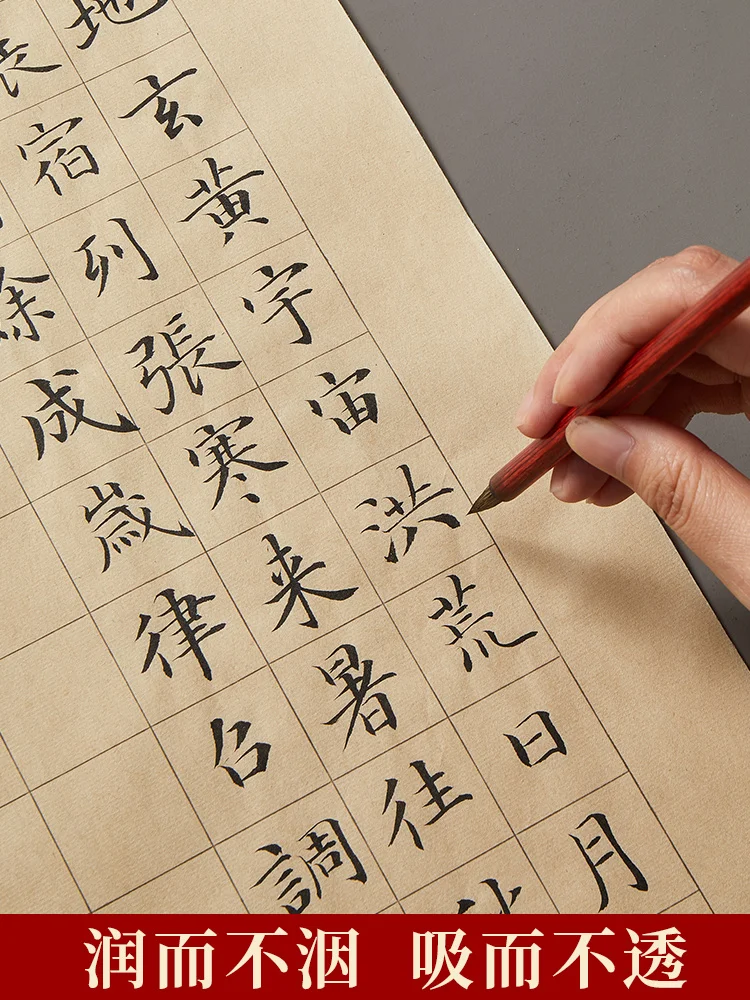 地玄黄宇宙洪荒日月
宿列張寒来暑往
成歲律召調
润而不洇 吸而不透